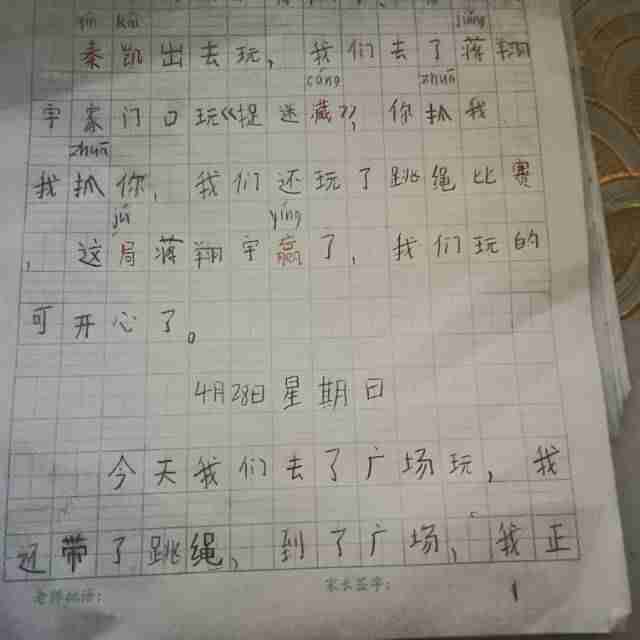 qín kǎi jiǎng
秦凯出去玩，我们去了蒋翔
cáng zhuā
宇家门口玩《捉迷藏》，你抓我，
zhuā
我抓你，我们还玩了跳绳比赛
jú yíng
，这局蒋翔宇赢了，我们玩的
可开心了。
4月28日星期日
今天我们去了广场玩，我
还带了跳绳，到了广场，我正
老师批语： 家长签字：